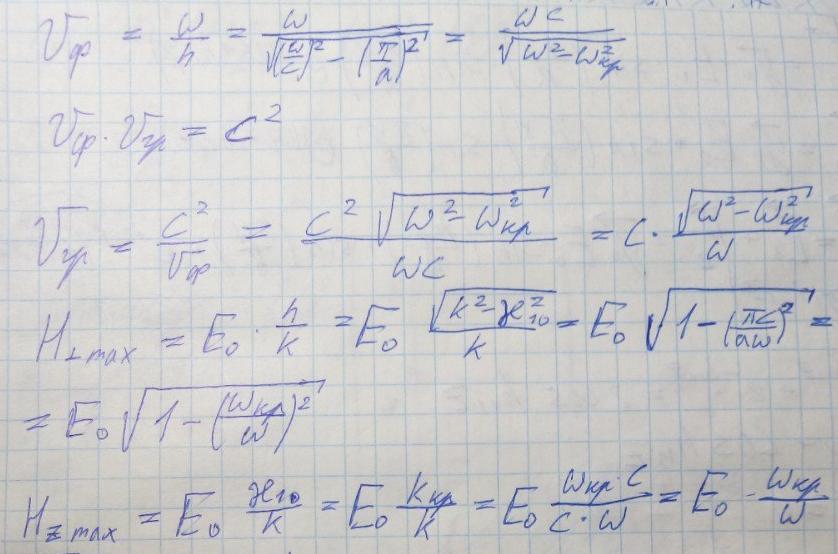 V_ф = ω/h = ω/√((ω/c)² − (π/a)²) = ωc/√(ω² − ω²_кр)
V_ф · V_гр = c²
V_гр = c²/V_ф = c²√(ω² − ω²_кр)/ωc = c · √(ω² − ω²_кр)/ω
H_⊥max = E₀ · h/k = E₀ √(k² − ϰ²₁₀)/k = E₀ √(1 − (πc/aω)²) =
= E₀ √(1 − (ω_кр/ω)²)
H_z max = E₀ ϰ₁₀/k = E₀ k_кр/k = E₀ ω_кр · c/c · ω = E₀ · ω_кр/ω